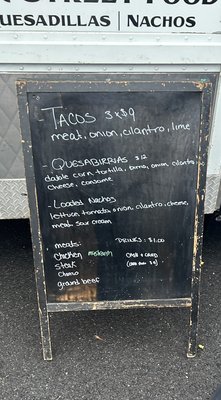 STREET FOOD
QUESADILLAS | NACHOS
TACOS 3x$9
meat, onion, cilantro, lime
- QUESABIRRIAS $12
doble corn tortilla, birria, onion, cilantro
cheese, consome
- Loaded Nachos
lettuce, tomado, onion, cilantro, cheese,
meat, sour cream
meats: DRINKS: $1.00
chicken CASH & CARD
steak
Chorizo
ground beef